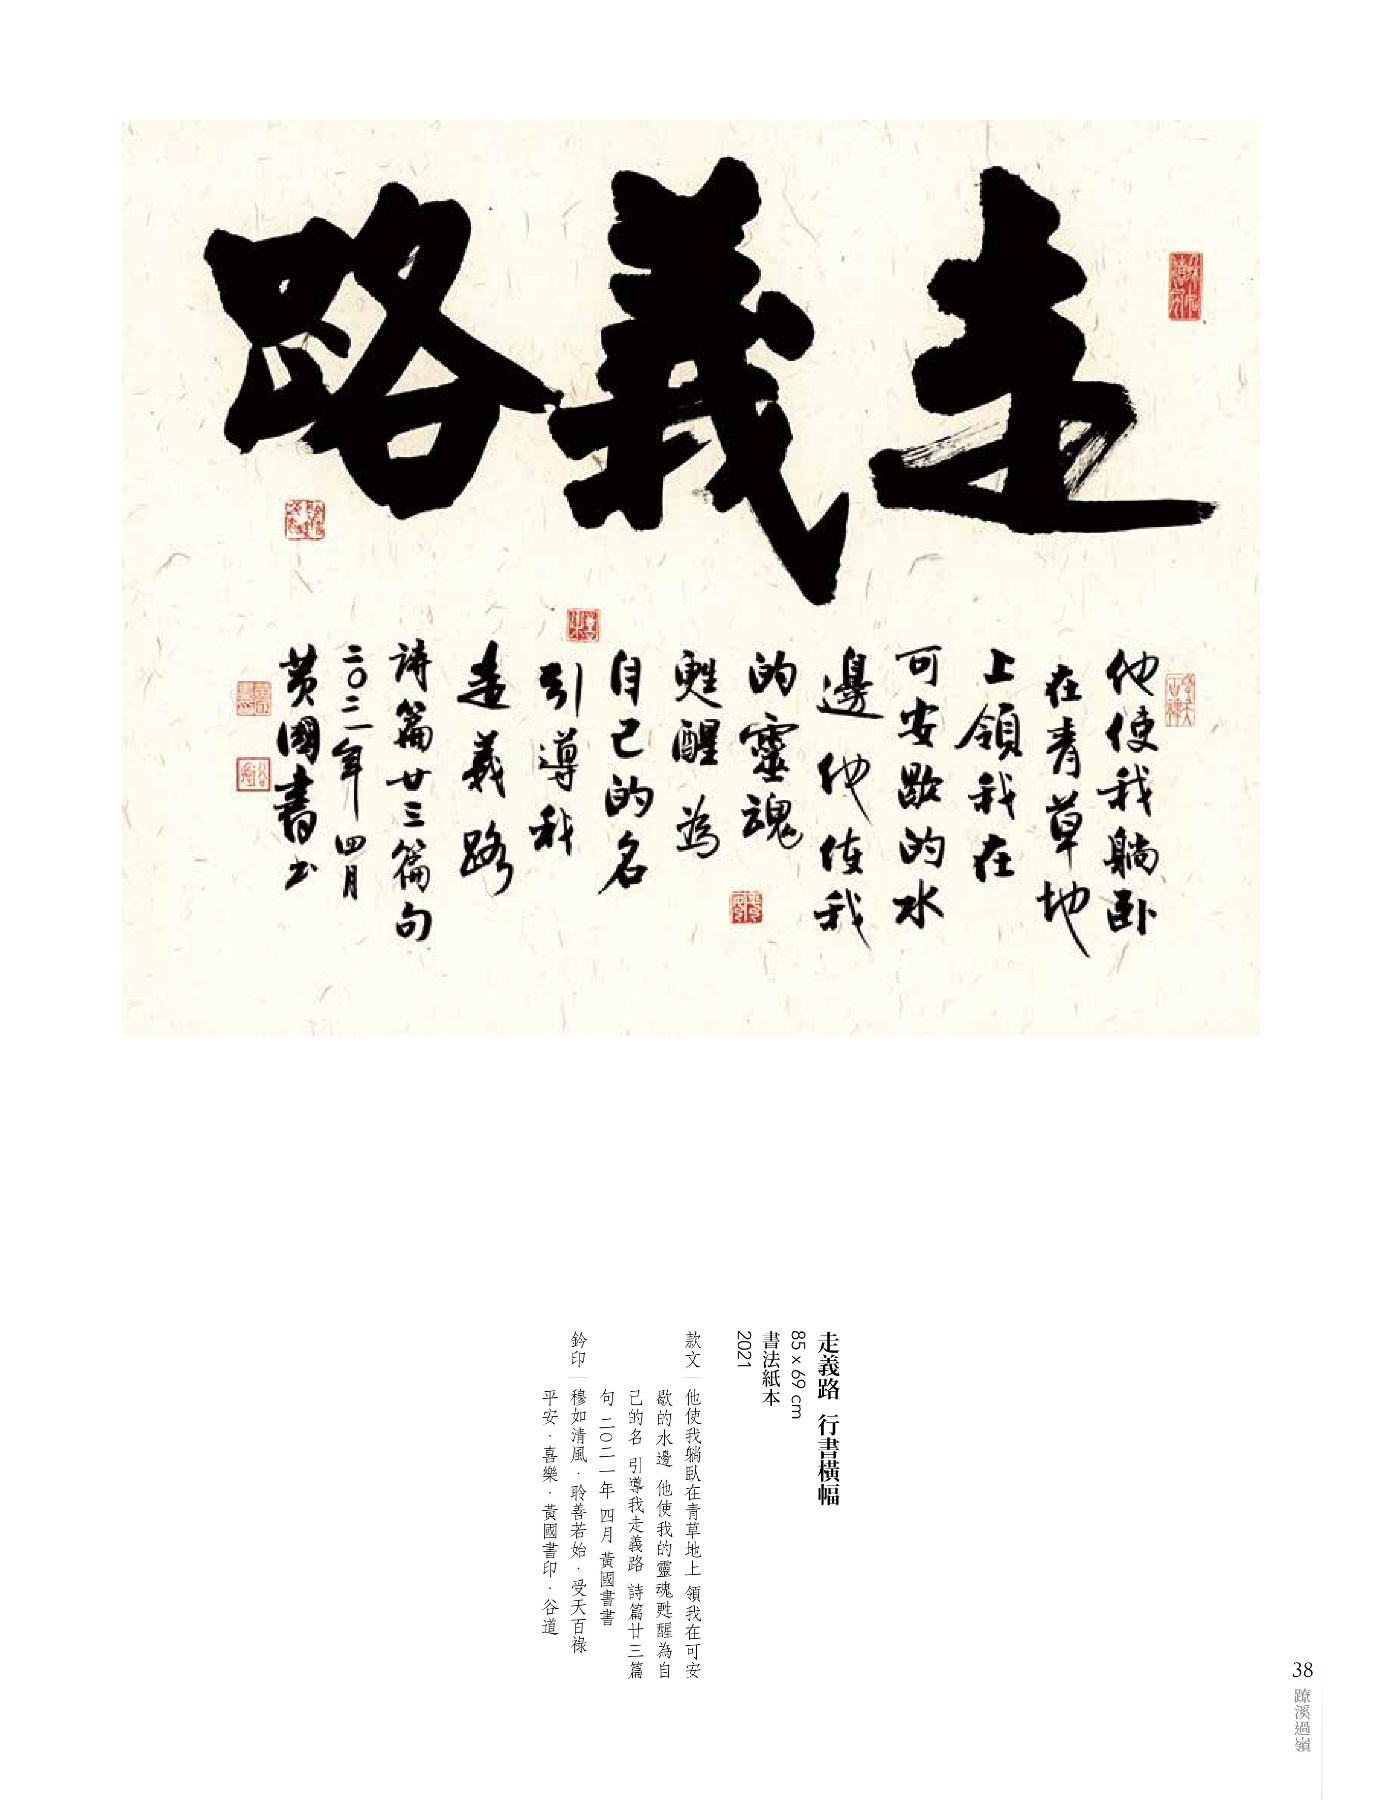 走義路
他使我躺臥
在青草地
上領我在
可安歇的水
邊他使我
的靈魂
甦醒為
自己的名
引導我
走義路
詩篇廿三篇句
二〇二一年四月
黃國書書
走義路 行書橫幅
85 x 69 cm
書法紙本
2021
款文｜他使我躺臥在青草地上 領我在可安
歇的水邊 他使我的靈魂甦醒為自
己的名 引導我走義路 詩篇廿三篇
句 二〇二一年 四月 黃國書書
鈐印｜穆如清風．聆善若始．受天百祿
平安．喜樂．黃國書印．谷道
38
蹽溪過嶺